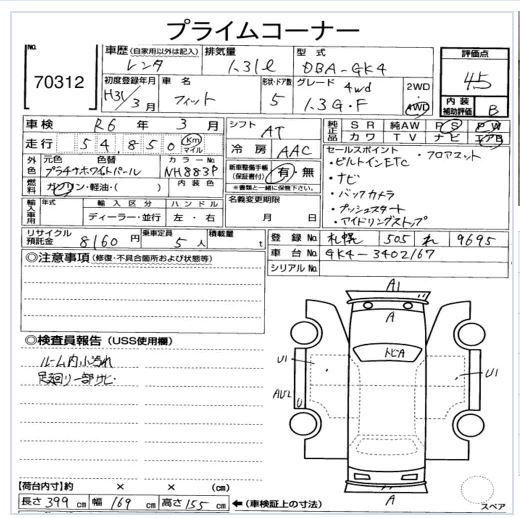 プライムコーナー
No.
70312
車歴 (自家用以外は記入)
レンタ
排気量
1.31ℓ
型式
DBA-GK4
評価点
4.5
初度登録年月
H31/3月
車名
フィット
形状・ドア数
5
グレード
4wd
1.3G・F
2WD
4WD
内装補助評価
B
車検
R6年3月
シフト
AT
純正品
SR 純AW PS PW
カワ TV ナビ エアB
走行
54,850 Km マイル
冷房
AAC
セールスポイント
・ビルトインETC ・フロアマット
・ナビ
・バックカメラ
・プッシュスタート
・アイドリングストップ
外色
元色 色替
プラチナホワイトパール
カラーNo.
NH883P
新車整備手帳
(保証書付)
有・無
※書類と一緒に保管下さい。
燃料
ガソリン・軽油・( )
内装色
名義変更期限
月 日
輸入車用
年式
輸入区分
ディーラー・並行
ハンドル
左・右
リサイクル預託金
8160円
乗車定員
5人
積載量
t
登録No.
札幌 505 れ 9695
車台No.
GK4-3402167
シリアルNo.
◎注意事項 (修復・不具合箇所および状態等)
◎検査員報告 (USS使用欄)
ルーム内小汚れ
足廻り一部サビ
A1
A
トビA
U1
U1
U
A
【荷台内寸】約 × × (cm)
長さ 399 cm 幅 169 cm 高さ 155 cm ←(車検証上の寸法)
スペア